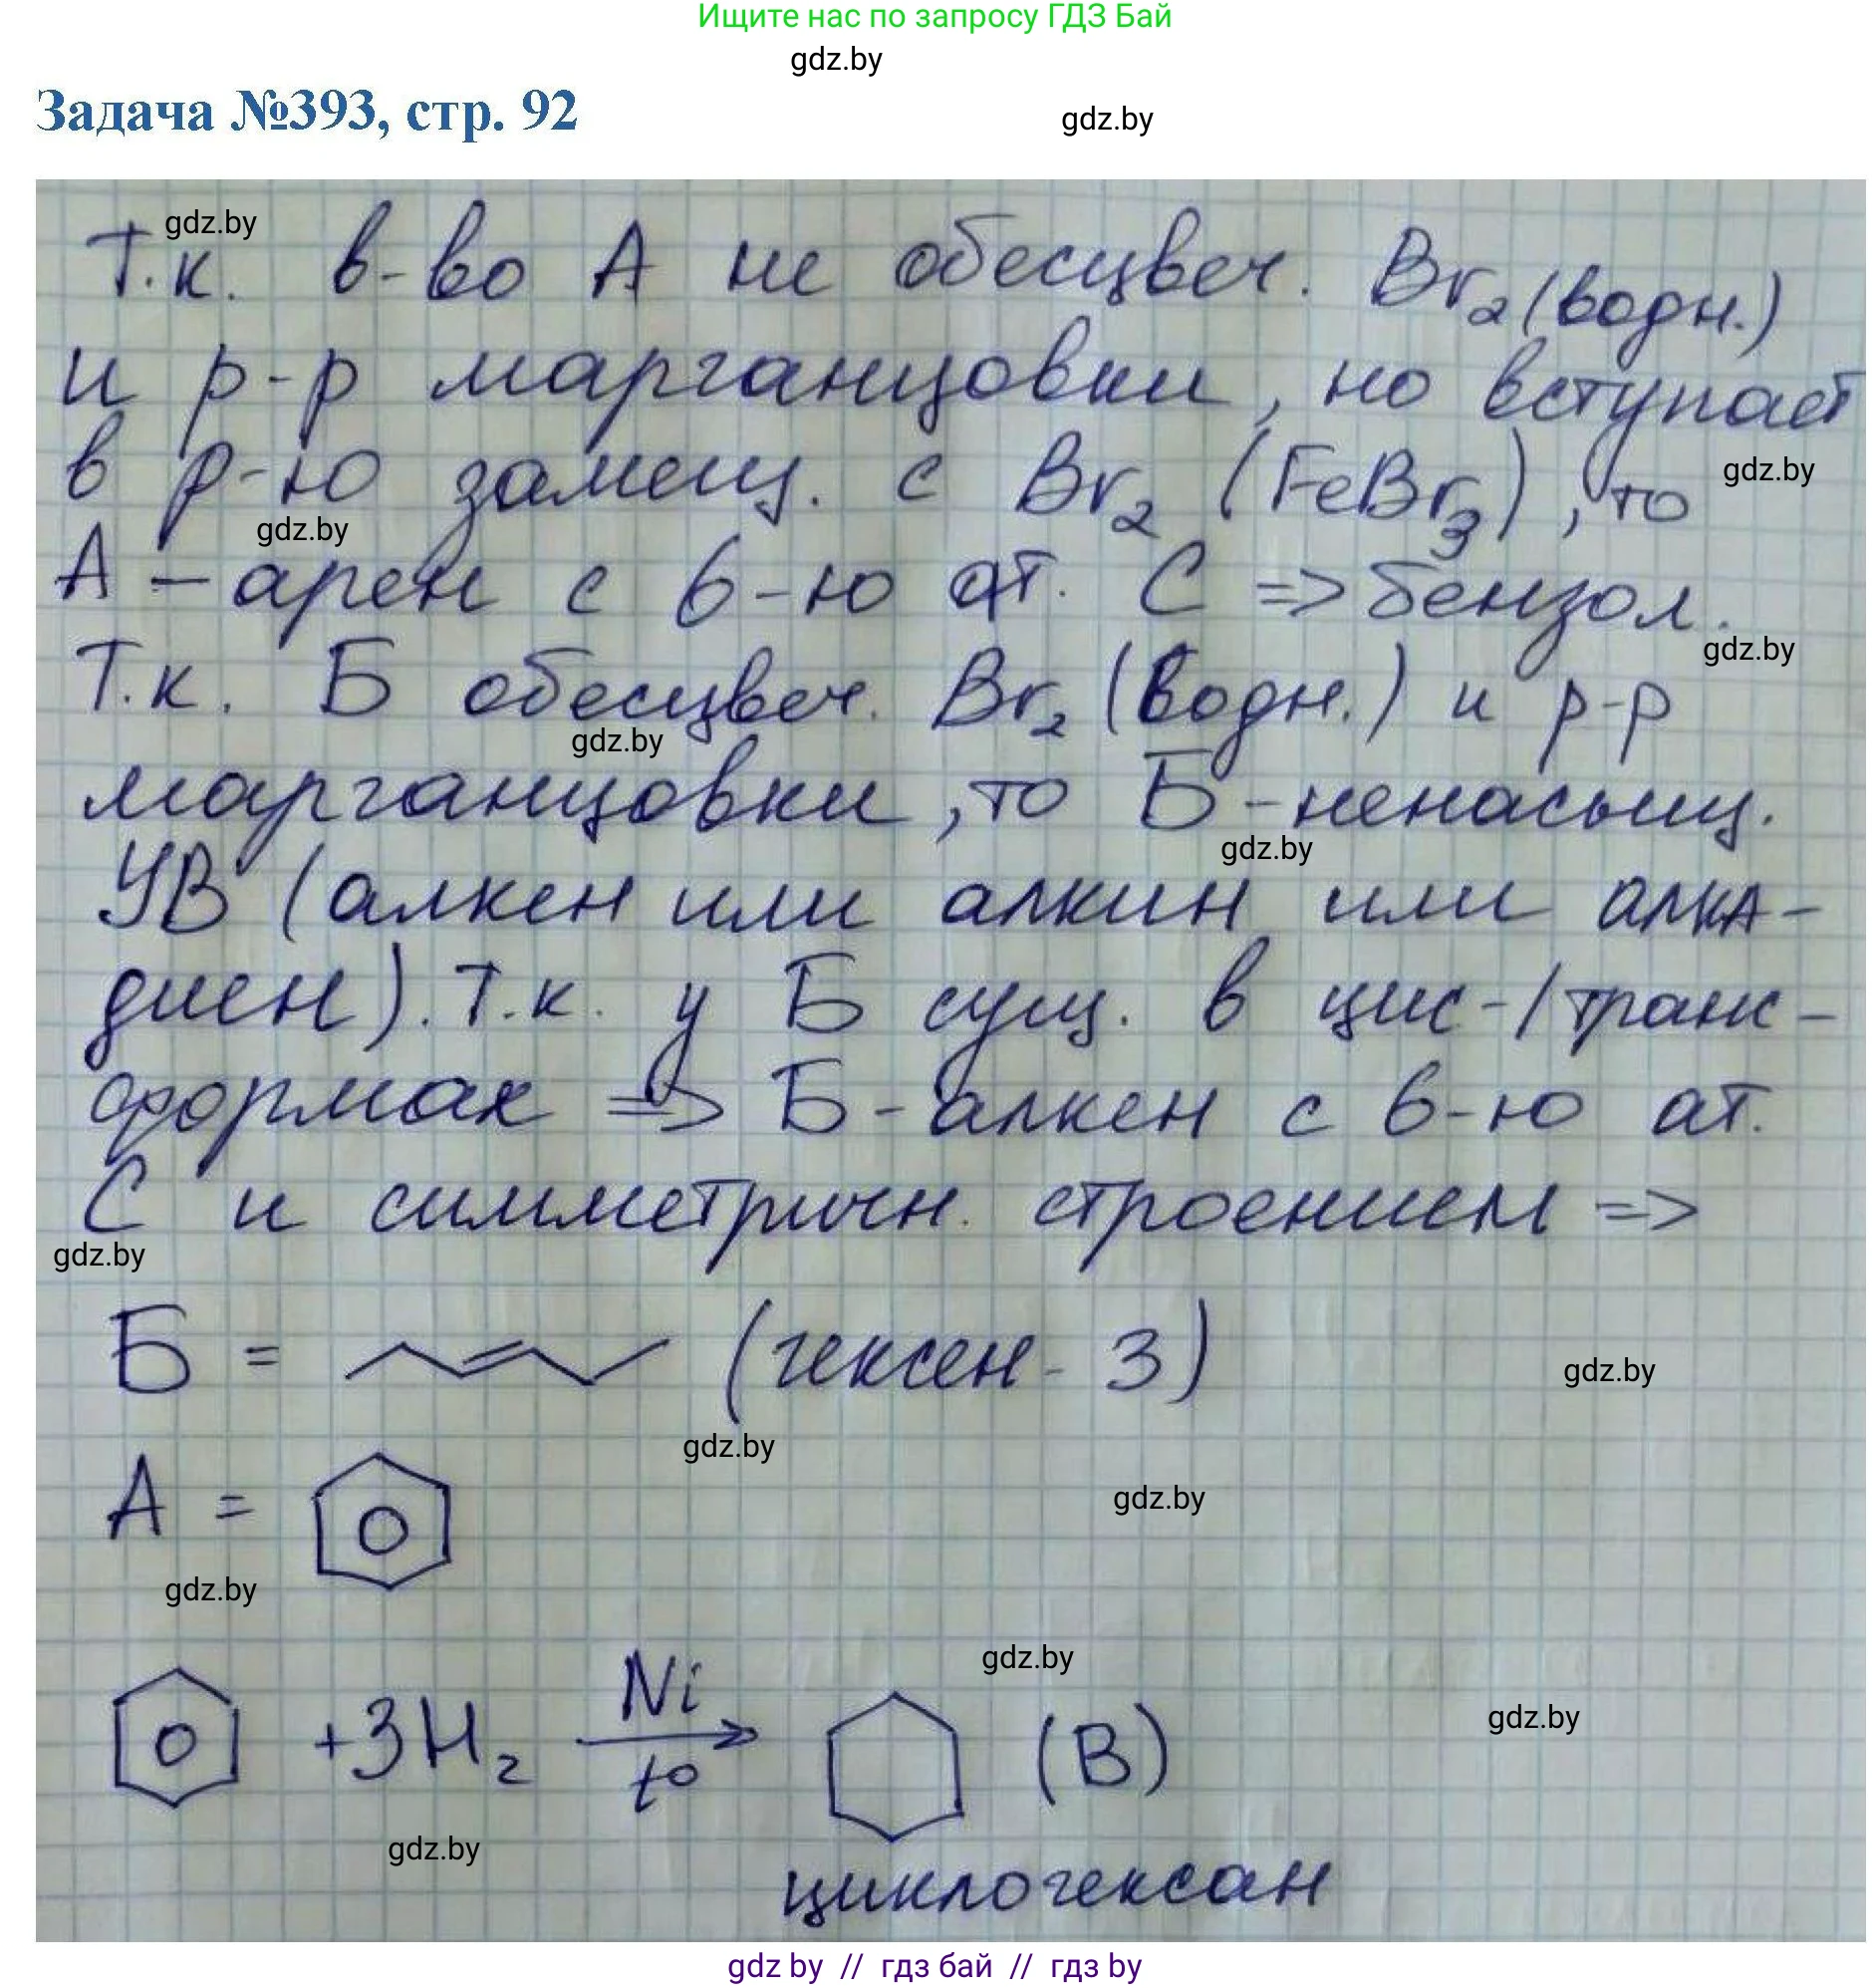 Ищите нас по запросу ГДЗ Бай
gdz.by
Задача №393, стр. 92
gdz.by
gdz.by
Т.к. в-во А не обесцвеч. Br₂(водн.)
и р-р марганцовки, но вступает
в р-ю замещ. с Br₂ (FeBr₃), то
gdz.by
gdz.by
А – арен с 6-ю ат. С => бензол.
gdz.by
Т.к. Б обесцвеч. Br₂ (водн.) и р-р
gdz.by
марганцовки, то Б - ненасыщ.
gdz.by
УВ (алкен или алкин или алка-
диен). Т.к. у Б сущ. в цис-/транс-
формах => Б - алкен с 6-ю ат.
С и симметричн. строением =>
gdz.by
Б = (гексен-3)
gdz.by
gdz.by
А =
gdz.by
gdz.by
gdz.by
gdz.by
+3H₂ Ni t° (В)
gdz.by
циклогексан
gdz by // гдз бай // гдз by